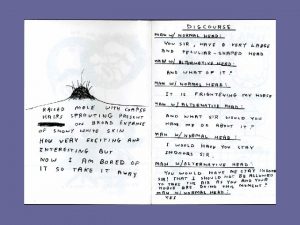 RAISED MOLE WITH COARSE
HAIRS SPROUTING PRESENT
ON BROAD EXPANSE
OF SNOWY WHITE SKIN
HOW VERY EXCITING AND
INTERESTING BUT
NOW I AM BORED OF
IT SO TAKE IT AWAY
DISCOURSE
MAN W/ NORMAL HEAD:
YOU SIR, HAVE A VERY LARGE
AND PECULIAR-SHAPED HEAD
MAN W/ ALTERNATIVE HEAD:
AND WHAT OF IT?
MAN W/ NORMAL HEAD:
IT IS FRIGHTENING MY HORSE
MAN W/ ALTERNATIVE HEAD:
AND WHAT SIR WOULD YOU
HAVE ME DO ABOUT IT?
MAN W/ NORMAL HEAD:
I WOULD HAVE YOU STAY
INDOORS SIR.
MAN W/ ALTERNATIVE HEAD:
YOU WOULD HAVE ME STAY INDOORS
SIR! THAT I SHOULD NOT BE ALLOWED
TO TAKE THE AIR AS YOU AND YOUR
HORSE ARE DOING THIS MOMENT?
MAN W/ NORMAL HEAD:
YES